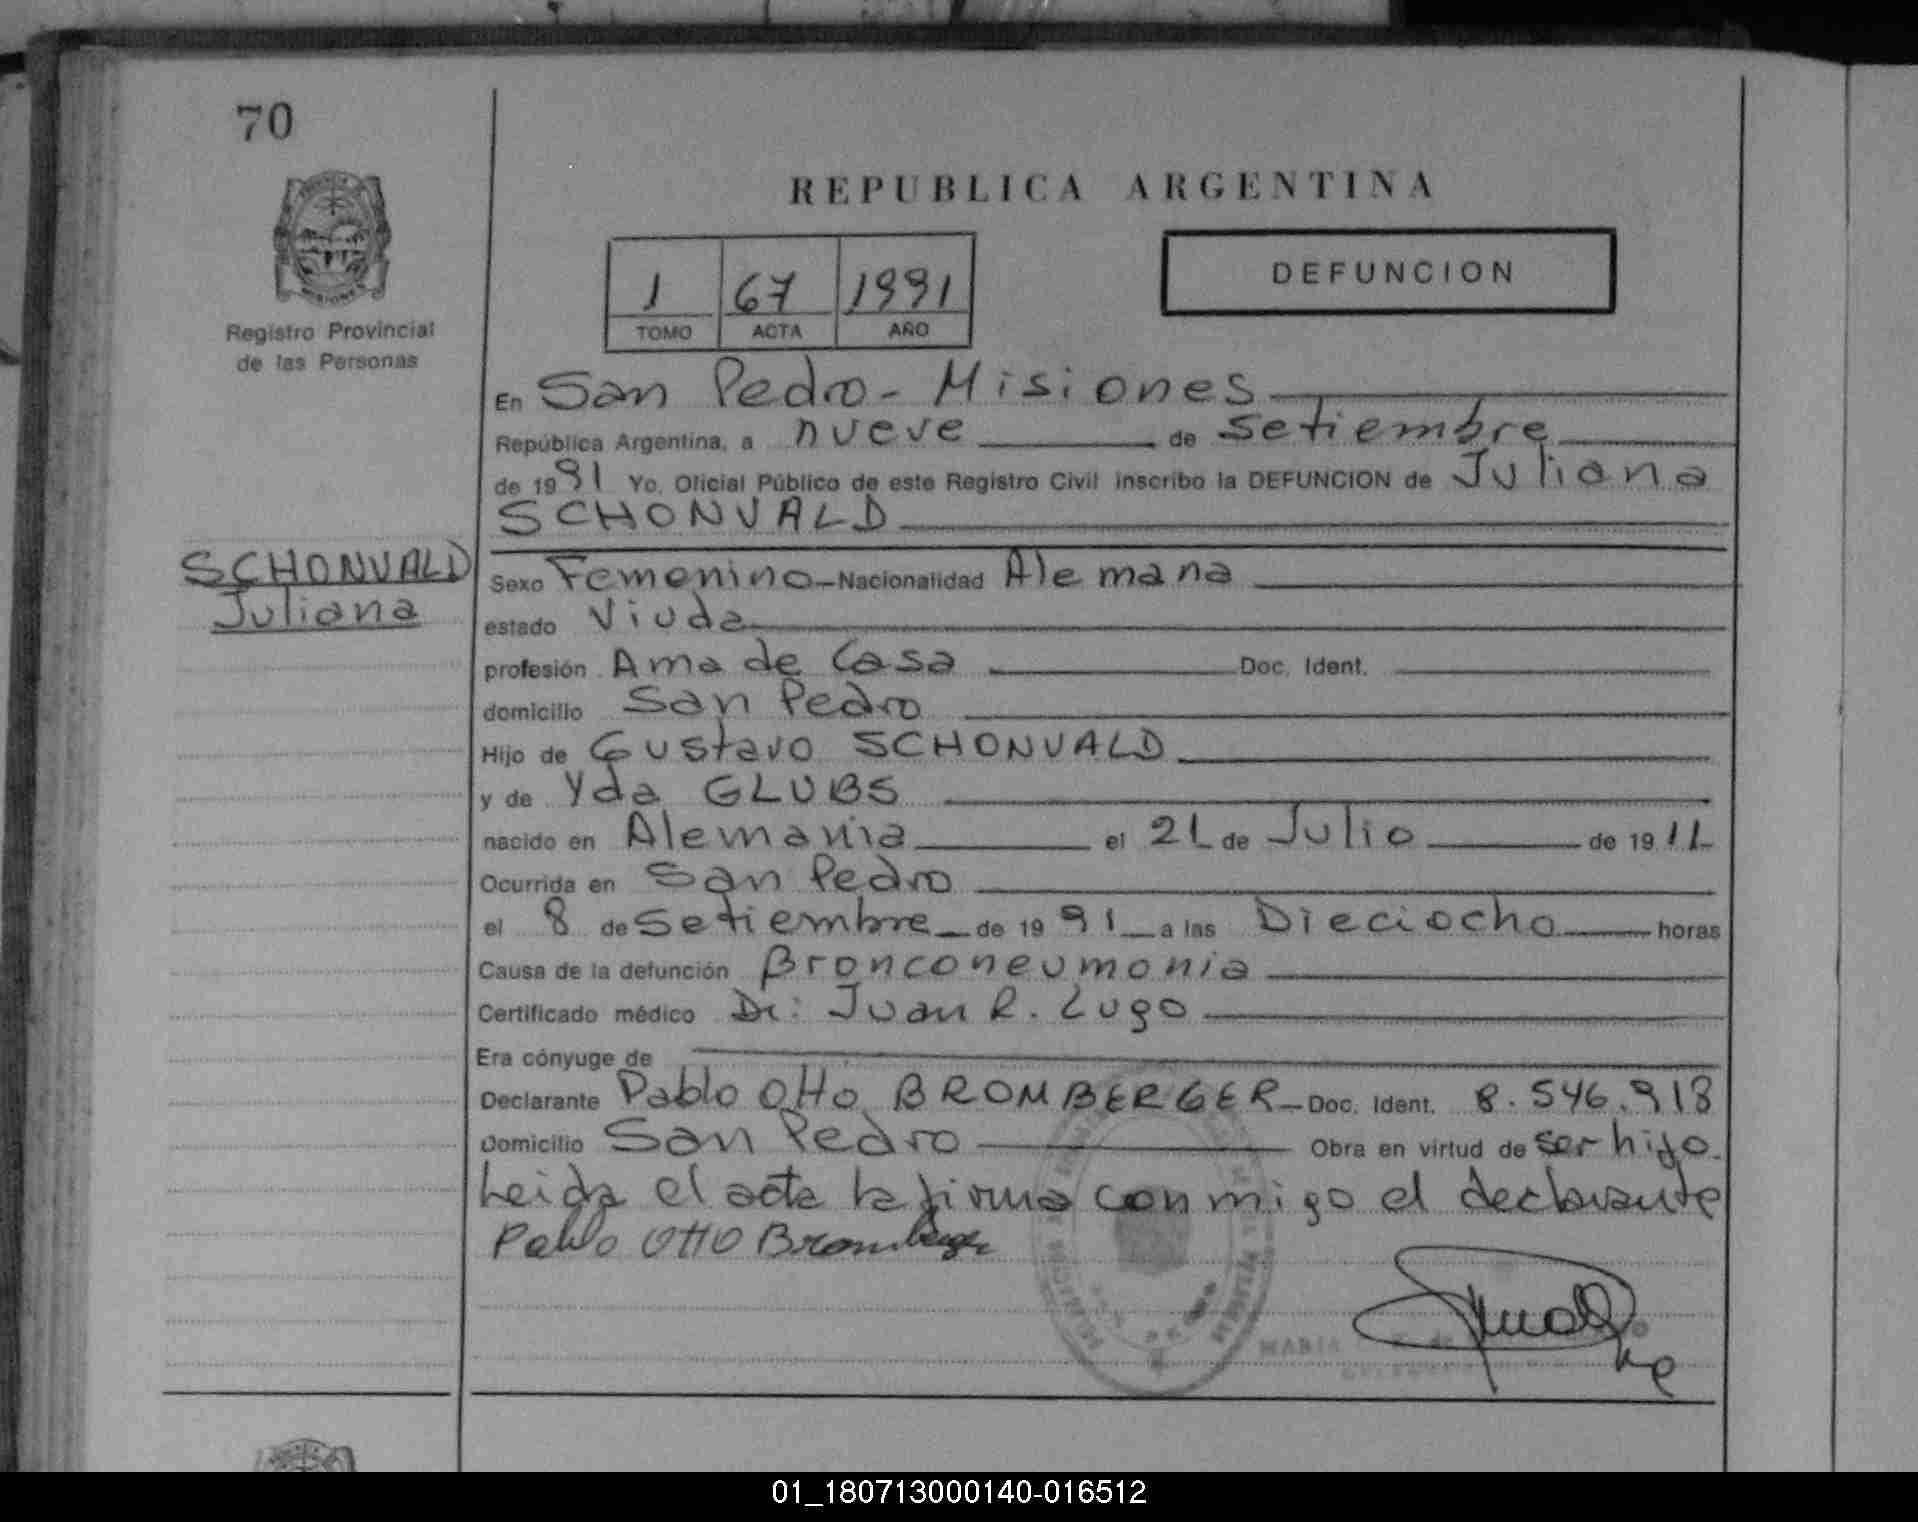 70
REPUBLICA ARGENTINA
MISIONES
Registro Provincial
de las Personas
1 67 1991
TOMO ACTA AÑO
DEFUNCION
En San Pedro - Misiones
República Argentina, a nueve de Setiembre
de 1991 Yo, Oficial Público de este Registro Civil inscribo la DEFUNCION de Juliana
SCHONVALD
SCHONVALD
Juliana
Sexo Femenino - Nacionalidad Alemana
estado Viuda
profesión Ama de Casa Doc. Ident.
domicilio San Pedro
Hijo de Gustavo SCHONVALD
y de Yda GLUBS
nacido en Alemania el 21 de Julio de 1911
Ocurrida en San Pedro
el 8 de Setiembre de 1991 a las Dieciocho horas
Causa de la defunción Bronconeumonia
Certificado médico Dr: Juan R. Lugo
Era cónyuge de
Declarante Pablo Otto BROMBERGER - Doc. Ident. 8.546.918
Domicilio San Pedro Obra en virtud de ser hijo.
Leida el acta la firma conmigo el declarante
Pablo Otto Bromberger
MARIA
01_180713000140-016512